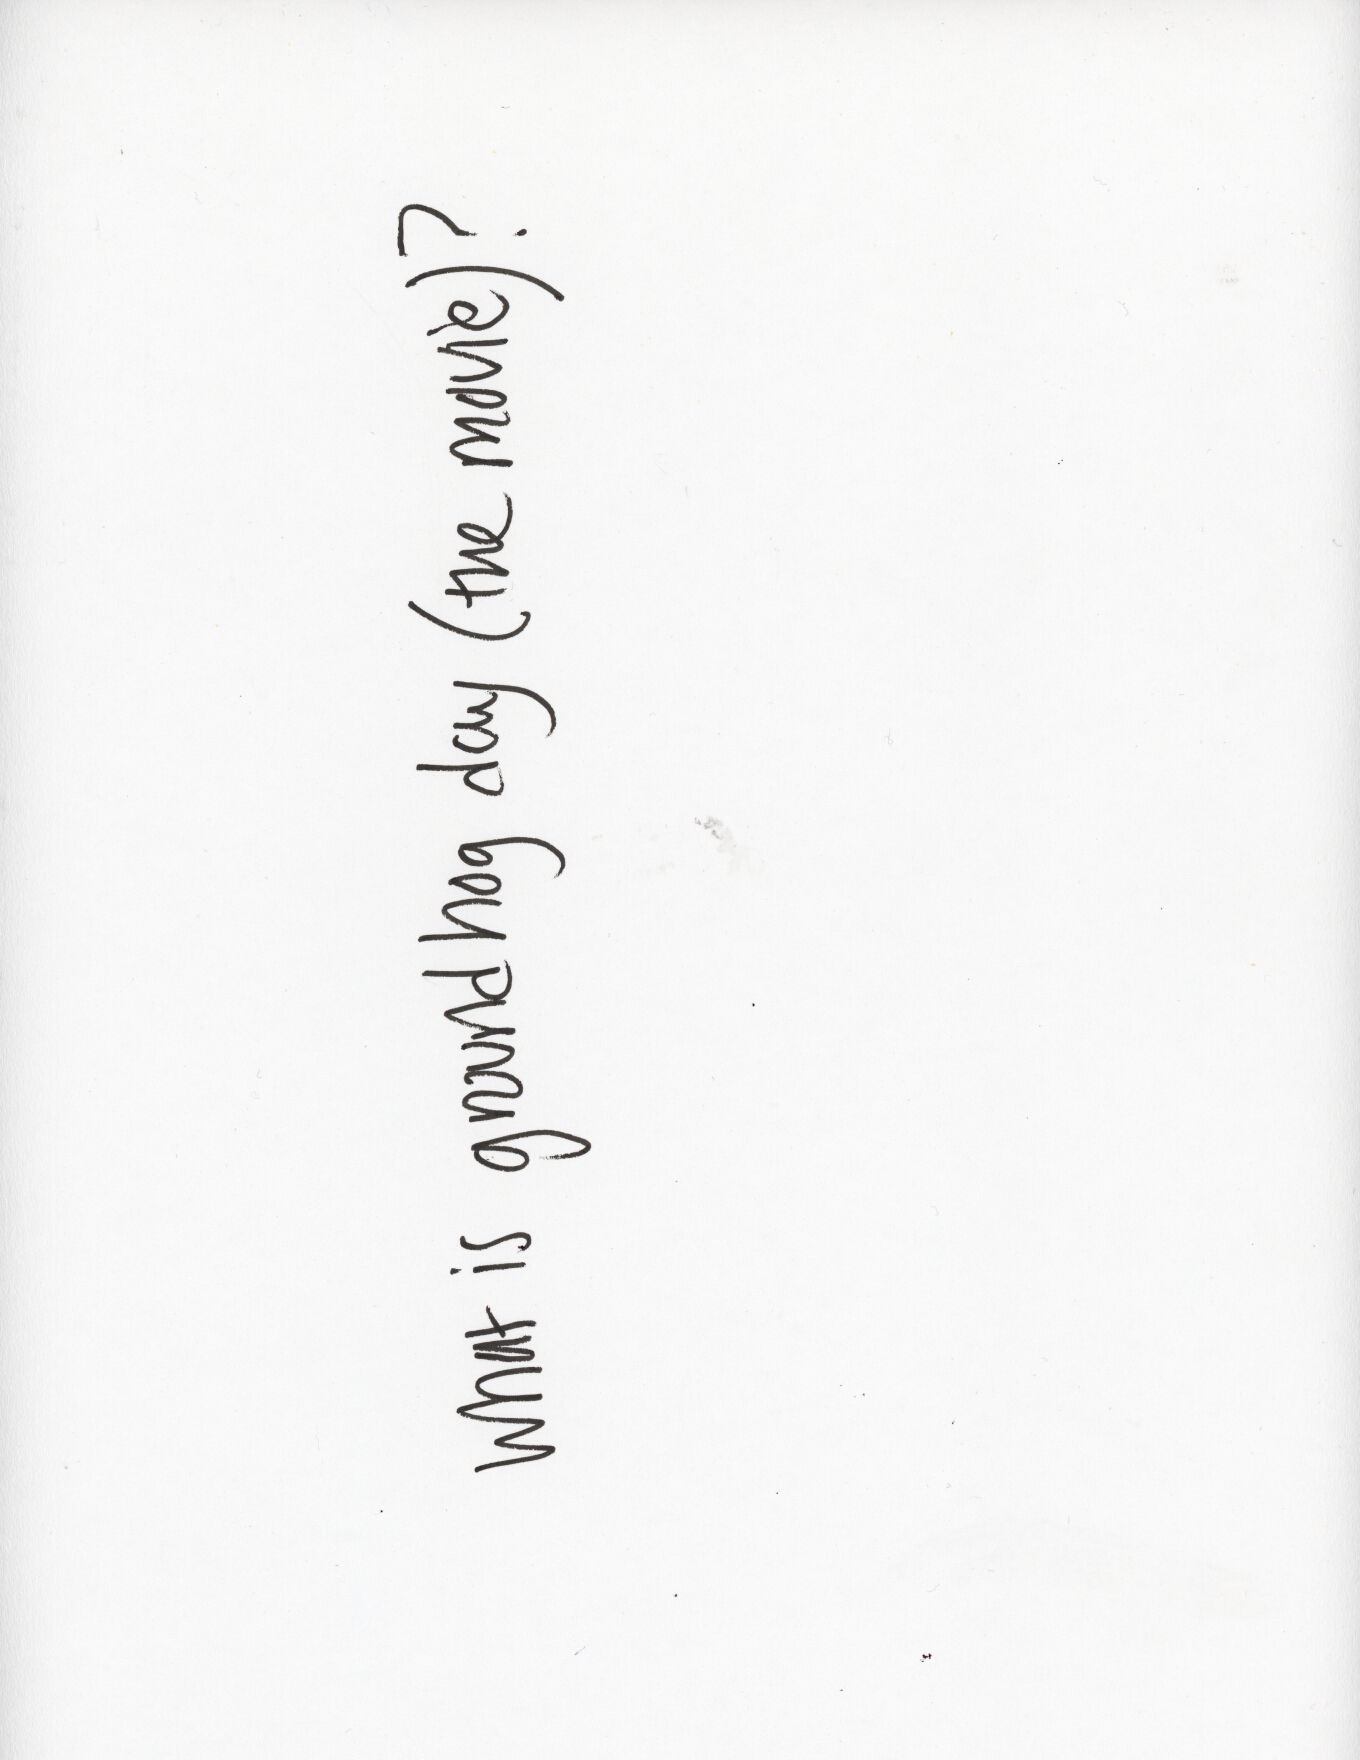 What is groundhog day (the movie)?